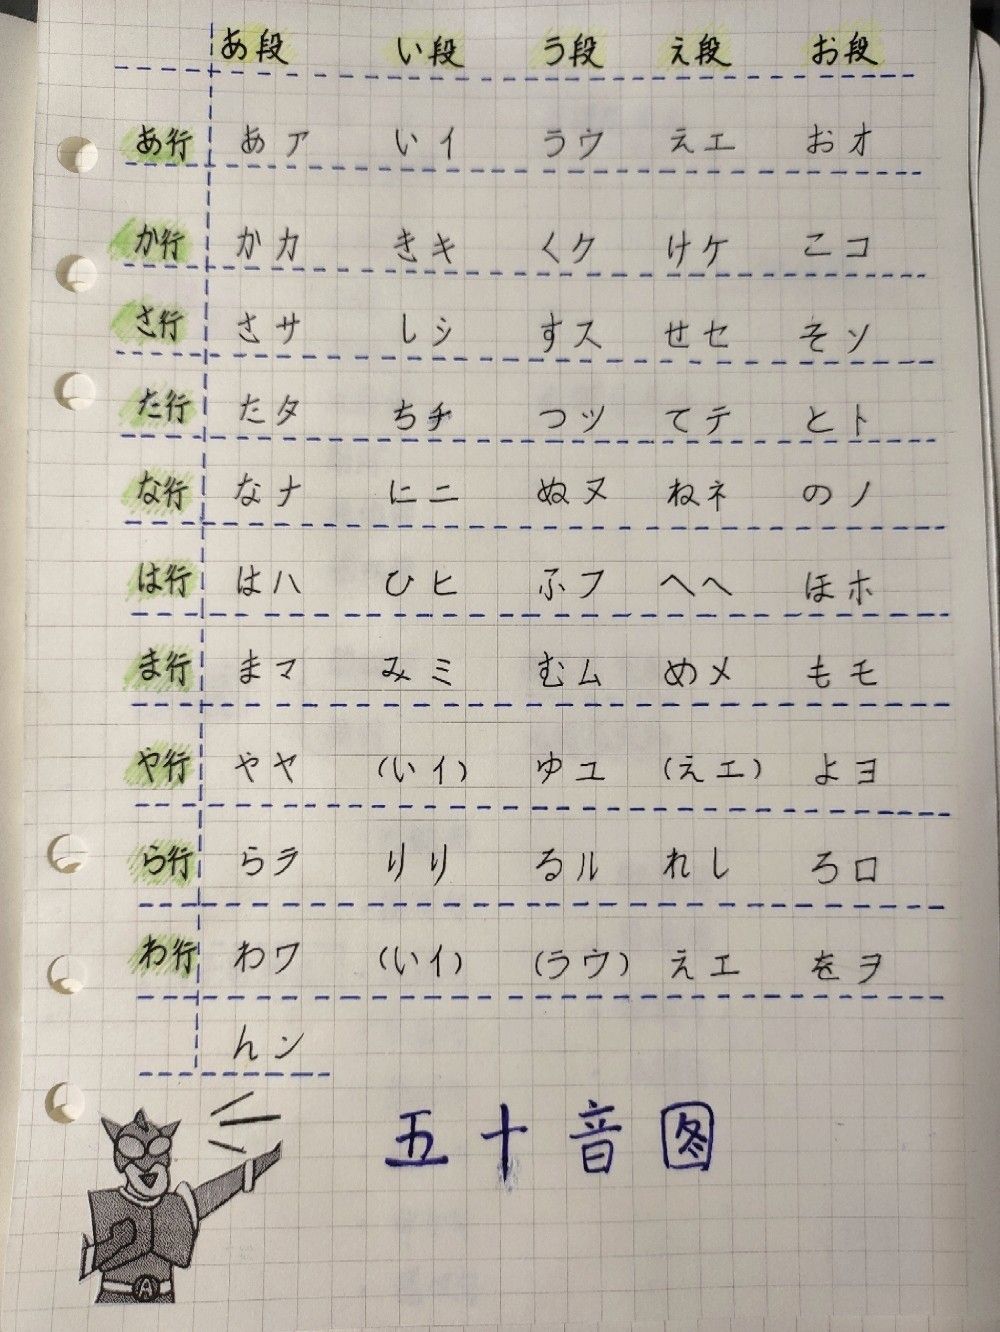 あ段 い段 う段 え段 お段
あ行 あ ア い イ う ウ え エ お オ
か行 か カ き キ く ク け ケ こ コ
さ行 さ サ し シ す ス せ セ そ ソ
た行 た タ ち チ つ ツ て テ と ト
な行 な ナ に ニ ぬ ヌ ね ネ の ノ
は行 は ハ ひ ヒ ふ フ へ ヘ ほ ホ
ま行 ま マ み ミ む ム め メ も モ
や行 や ヤ (い イ) ゆ ユ (え エ) よ ヨ
ら行 ら ラ り リ る ル れ レ ろ ロ
わ行 わ ワ (い イ) (う ウ) え エ を ヲ
ん ン
五十音图
A